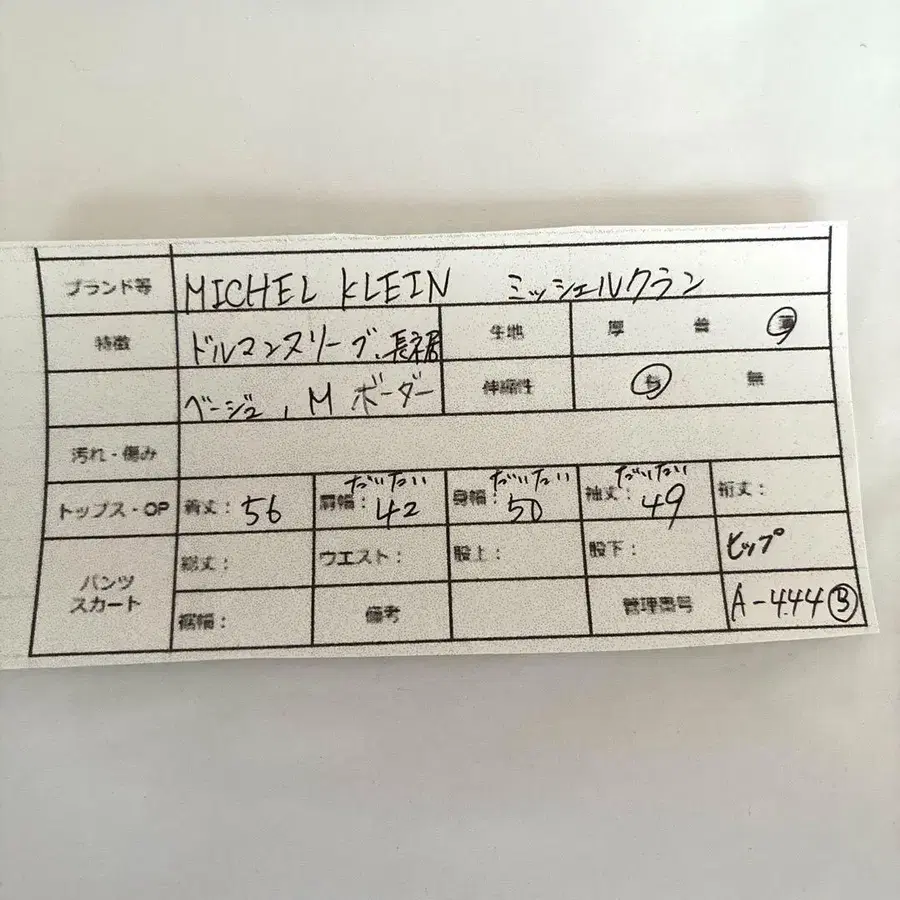 ブランド等 MICHEL KLEIN ミッシェルクラン
特徴 ドルマンスリーブ、長袖 生地 厚 普 薄
ベージュ、M ボーダー 伸縮性 有 無
汚れ・傷み
トップス・OP 着丈: 56 肩幅: だいたい 42 身幅: だいたい 50 袖丈: だいたい 49 裄丈:
パンツ スカート 総丈: ウエスト: 股上: 股下: ヒップ
裾幅: 備考 管理番号 A-444 ③